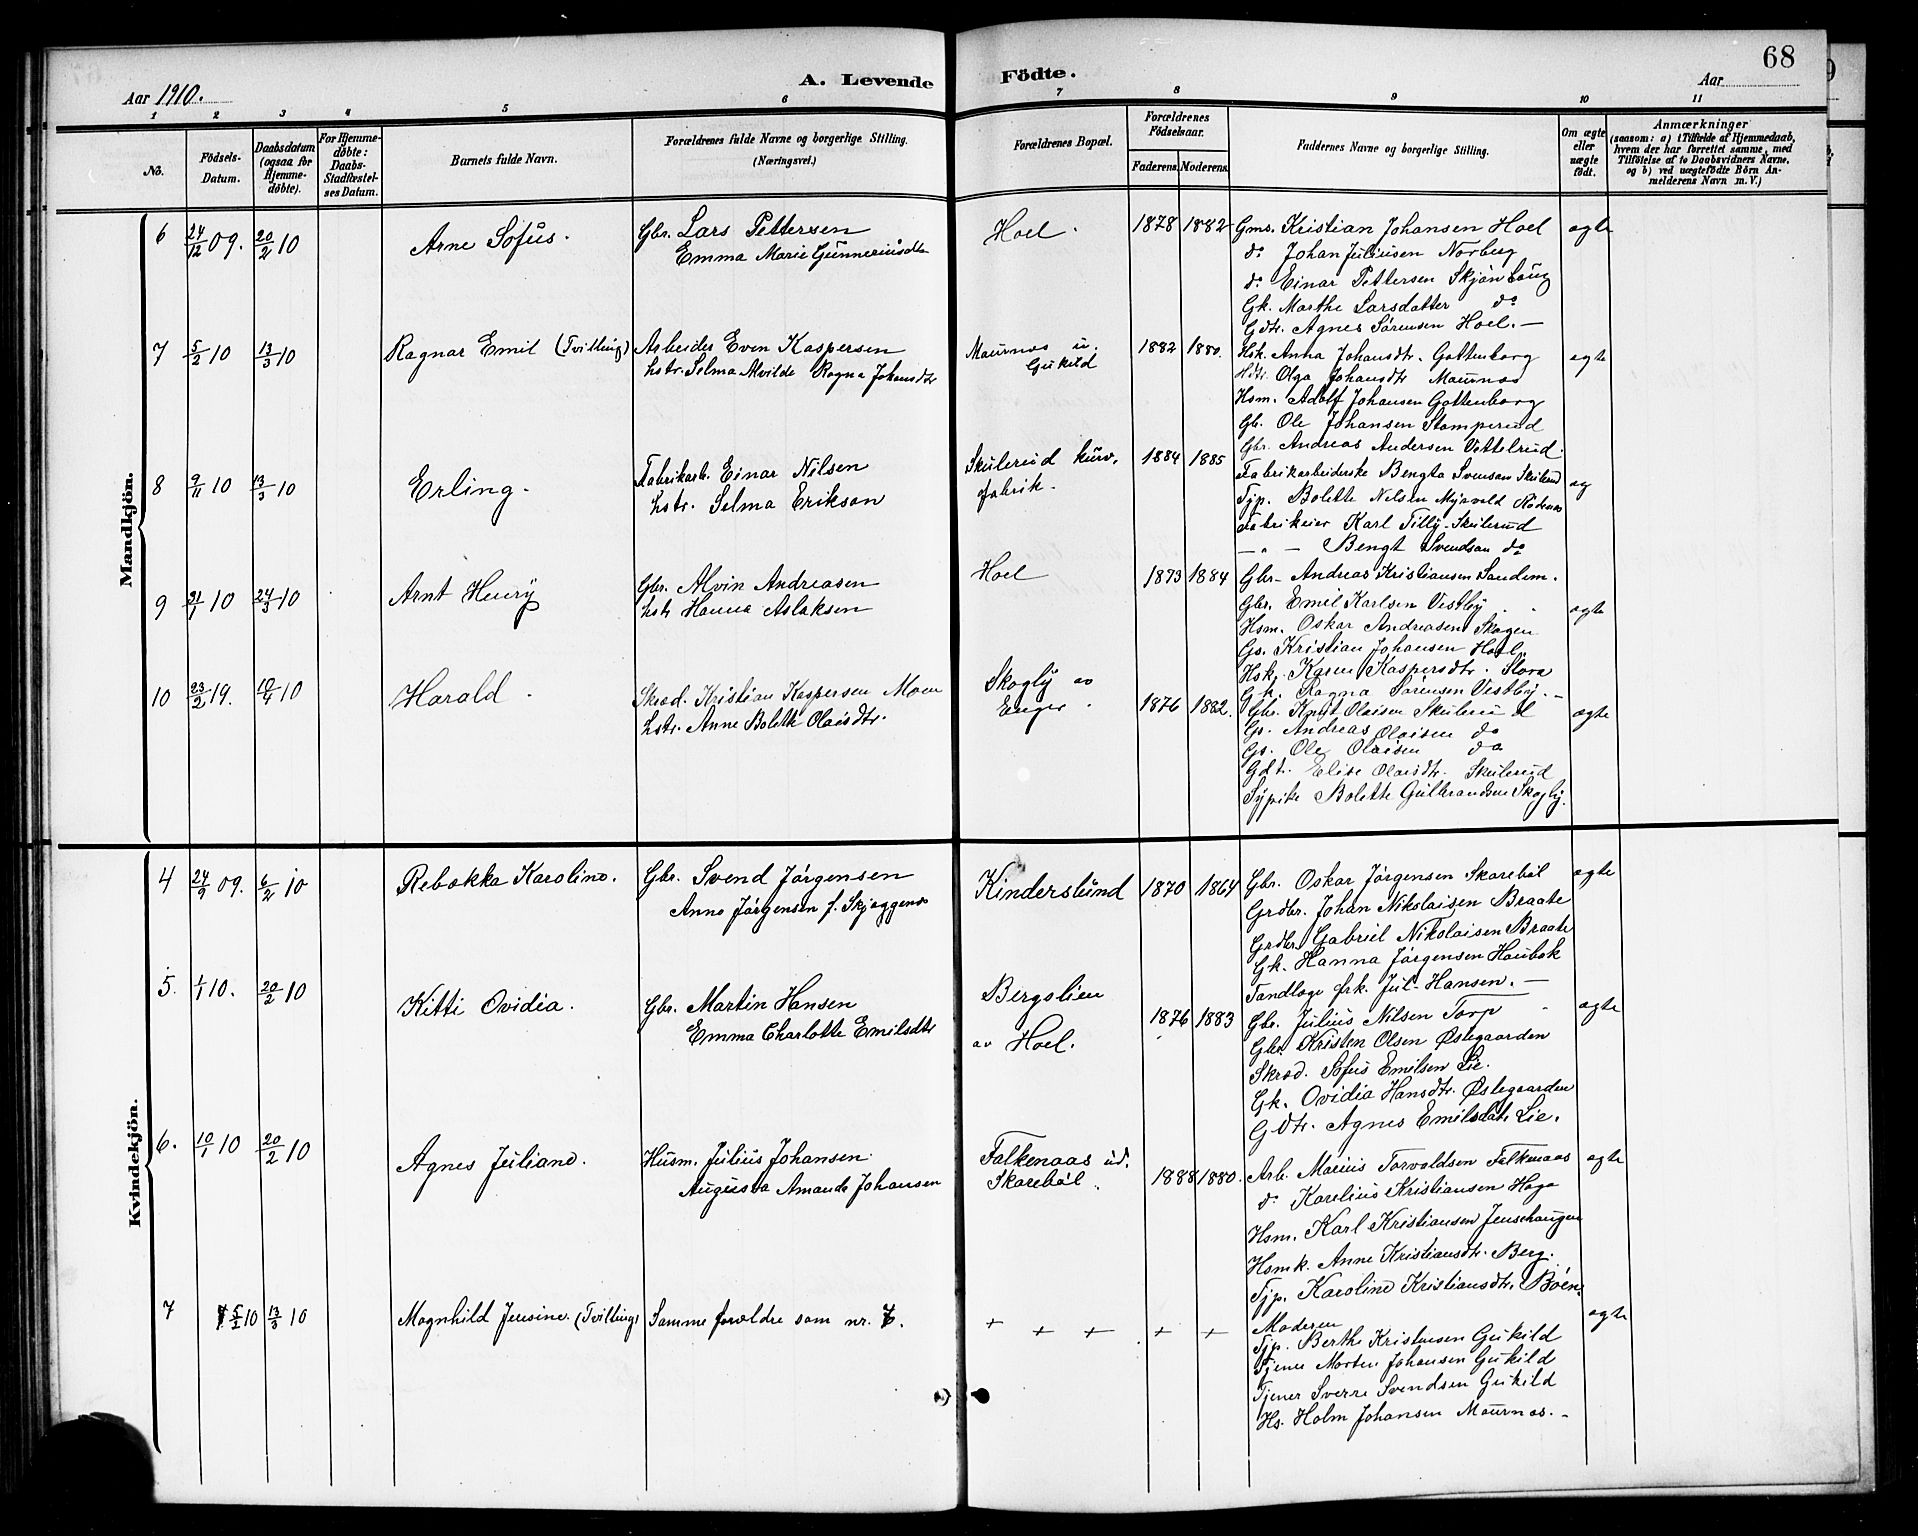 68
Aar 1910.
A. Levende
Födte.
Aar
1 2 3 4 5 6 7 8 9 10 11
No.
Födsels-
Datum.
Daabsdatum
(ogsaa for
Hjemme-
døbte).
For Hjemme-
døbte:
Daabs-
Stadfæstel-
ses Datum.
Barnets fulde Navn.
Forældrenes fulde Navne og borgerlige Stilling.
(Næringsvei.)
Forældrenes Bopæl.
Forældrenes
Födselsaar.
Faderens. Moderens.
Faddernes Navne og borgerlige Stilling.
Om ægte
eller
uægte
født.
Anmærkninger
(saasom: a) i Tilfælde af Hjemmedaab,
hvem der har forrettet samme, med
Tilføielse af to Daabsvidners Navne,
og b) ved uægtefødte Börn An-
melderens Navn m. V.)
Mandkjön.
6 24/12 09. 20/2 10 Arne Sofus. Gbr. Lars Pettersen
Emma Marie Gunneriusdtr
Hoel. 1878 1882 Gms. Kristian Johansen Hoel ægte
do Johan Juliusen Norberg
do Einar Pettersen Skjønhaug
Gk. Marthe Larsdatter do
Gdtr. Agnes Sørensen Hoel. —
7 5/2 10 13/3 10 Ragnar Emil (Tvilling) Arbeider Even Kaspersen
hstr. Selma Alvilde Ragna Johansdtr
Maurnas u.
Gukild
1882 1880. Hsk. Anna Johansdtr. Gottenborg ægte
Hdtr. Olga Johansdtr Maurnas
Hsm. Adolf Johansen Gottenborg
Gb. Ole Johansen Stomperud
8 9/11 10 13/3 10 Erling. Fabrikarb. Einar Nilsen
hstr. Selma Erikson
Skulerud kurv.
fabrik.
1884 1885 Gbr. Andreas Andersen Vettelrud.
Fabrikarbeiderske Bengta Svenson Skulerud æg
Tjp. Bolette Nelsen Myrvold Rødenes
Fabrikeier Karl Tilly Skulerud
— " — Bengt Svendsan do
9 21/1 10 24/3 10 Arnt Henry Gbr. Alvin Andreasen
hstr Hanna Aslaksen
Hoel 1873 1884 Gbr. Andreas Kristiansen Sandem.
Gbr. Emil Karlsen Vestby ægte
Hsm. Oskar Andreasen Skogen
Gs. Kristian Johansen Hoel.
Hskj. Karen Kaspersdtr. Slora
Gk. Ragna Sørensen Vestby. —
10 23/2 19. 10/4 10 Harald. Skræd. Kristian Kaspersen Moen
hstr. Anne Bolette Olaisdtr.
Skogly av
Enger.
1876 1882. Gbr. Knut Olaisen Skulerud ægte
Gs. Andreas Olaisen do
Gs. Ole Olaisen do
Gdt. Elise Olaisdtr. Skulerud
Sypike Bolette Gulbrandsen Skogly.
Kvindekjön.
4 24/9 09. 6/2 10 Rebekka Karoline. Gbr. Svend Jørgensen
Anne Jørgensen f. Skjeggenes
Kinderslund 1870 1864 Gbr. Oskar Jørgensen Skarebøl ægte
Grdbr. Johan Nikolaisen Braate
Grdbr. Gabriel Nikolaisen Braate
Gk. Hanna Jørgensen Haubek
Tandlæge frk. Jul. Hansen. —
5. 1/1 10. 20/2 10 Kitti Ovidia. Gbr. Martin Hansen
Emma Charlotte Emilsdtr
Bergslien
av Hoel.
1876 1883 Gbr. Julius Nilsen Torp ægte
Gbr. Kristen Olsen Østegaarden
Skræd. Sofus Emilsen Lie.
Gk. Ovidia Hansdtr. Østegaarden
Gdtr. Agnes Emilsdatr Lie.
6. 10/1 10 20/2 10 Agnes Juliane. Husm. Julius Johansen.
Augusta Amanda Johansen
Falkenaas ud.
Skarebøl.
1888 1880. Arb. Marius Torvaldsen Falkenaas ægte
do Karelius Kristiansen Haga
Hsm. Karl Kristiansen Jenschaugen
Hsmk. Anne Kristiansdtr. Berg.
Tjp. Karoline Kristiansdtr. Bøen.
7 5/2 10 13/3 10 Magnhild Jensine. (Tvilling) Samme forældre som nr. 7.
+ + + + + Moderen ægte
Tjp. Berthe Kristensen Gukild
Tjener Morten Johansen Gukild
Tjener Sverre Svendsen Gukild
Hs. Holm Johansen Maurnas. -